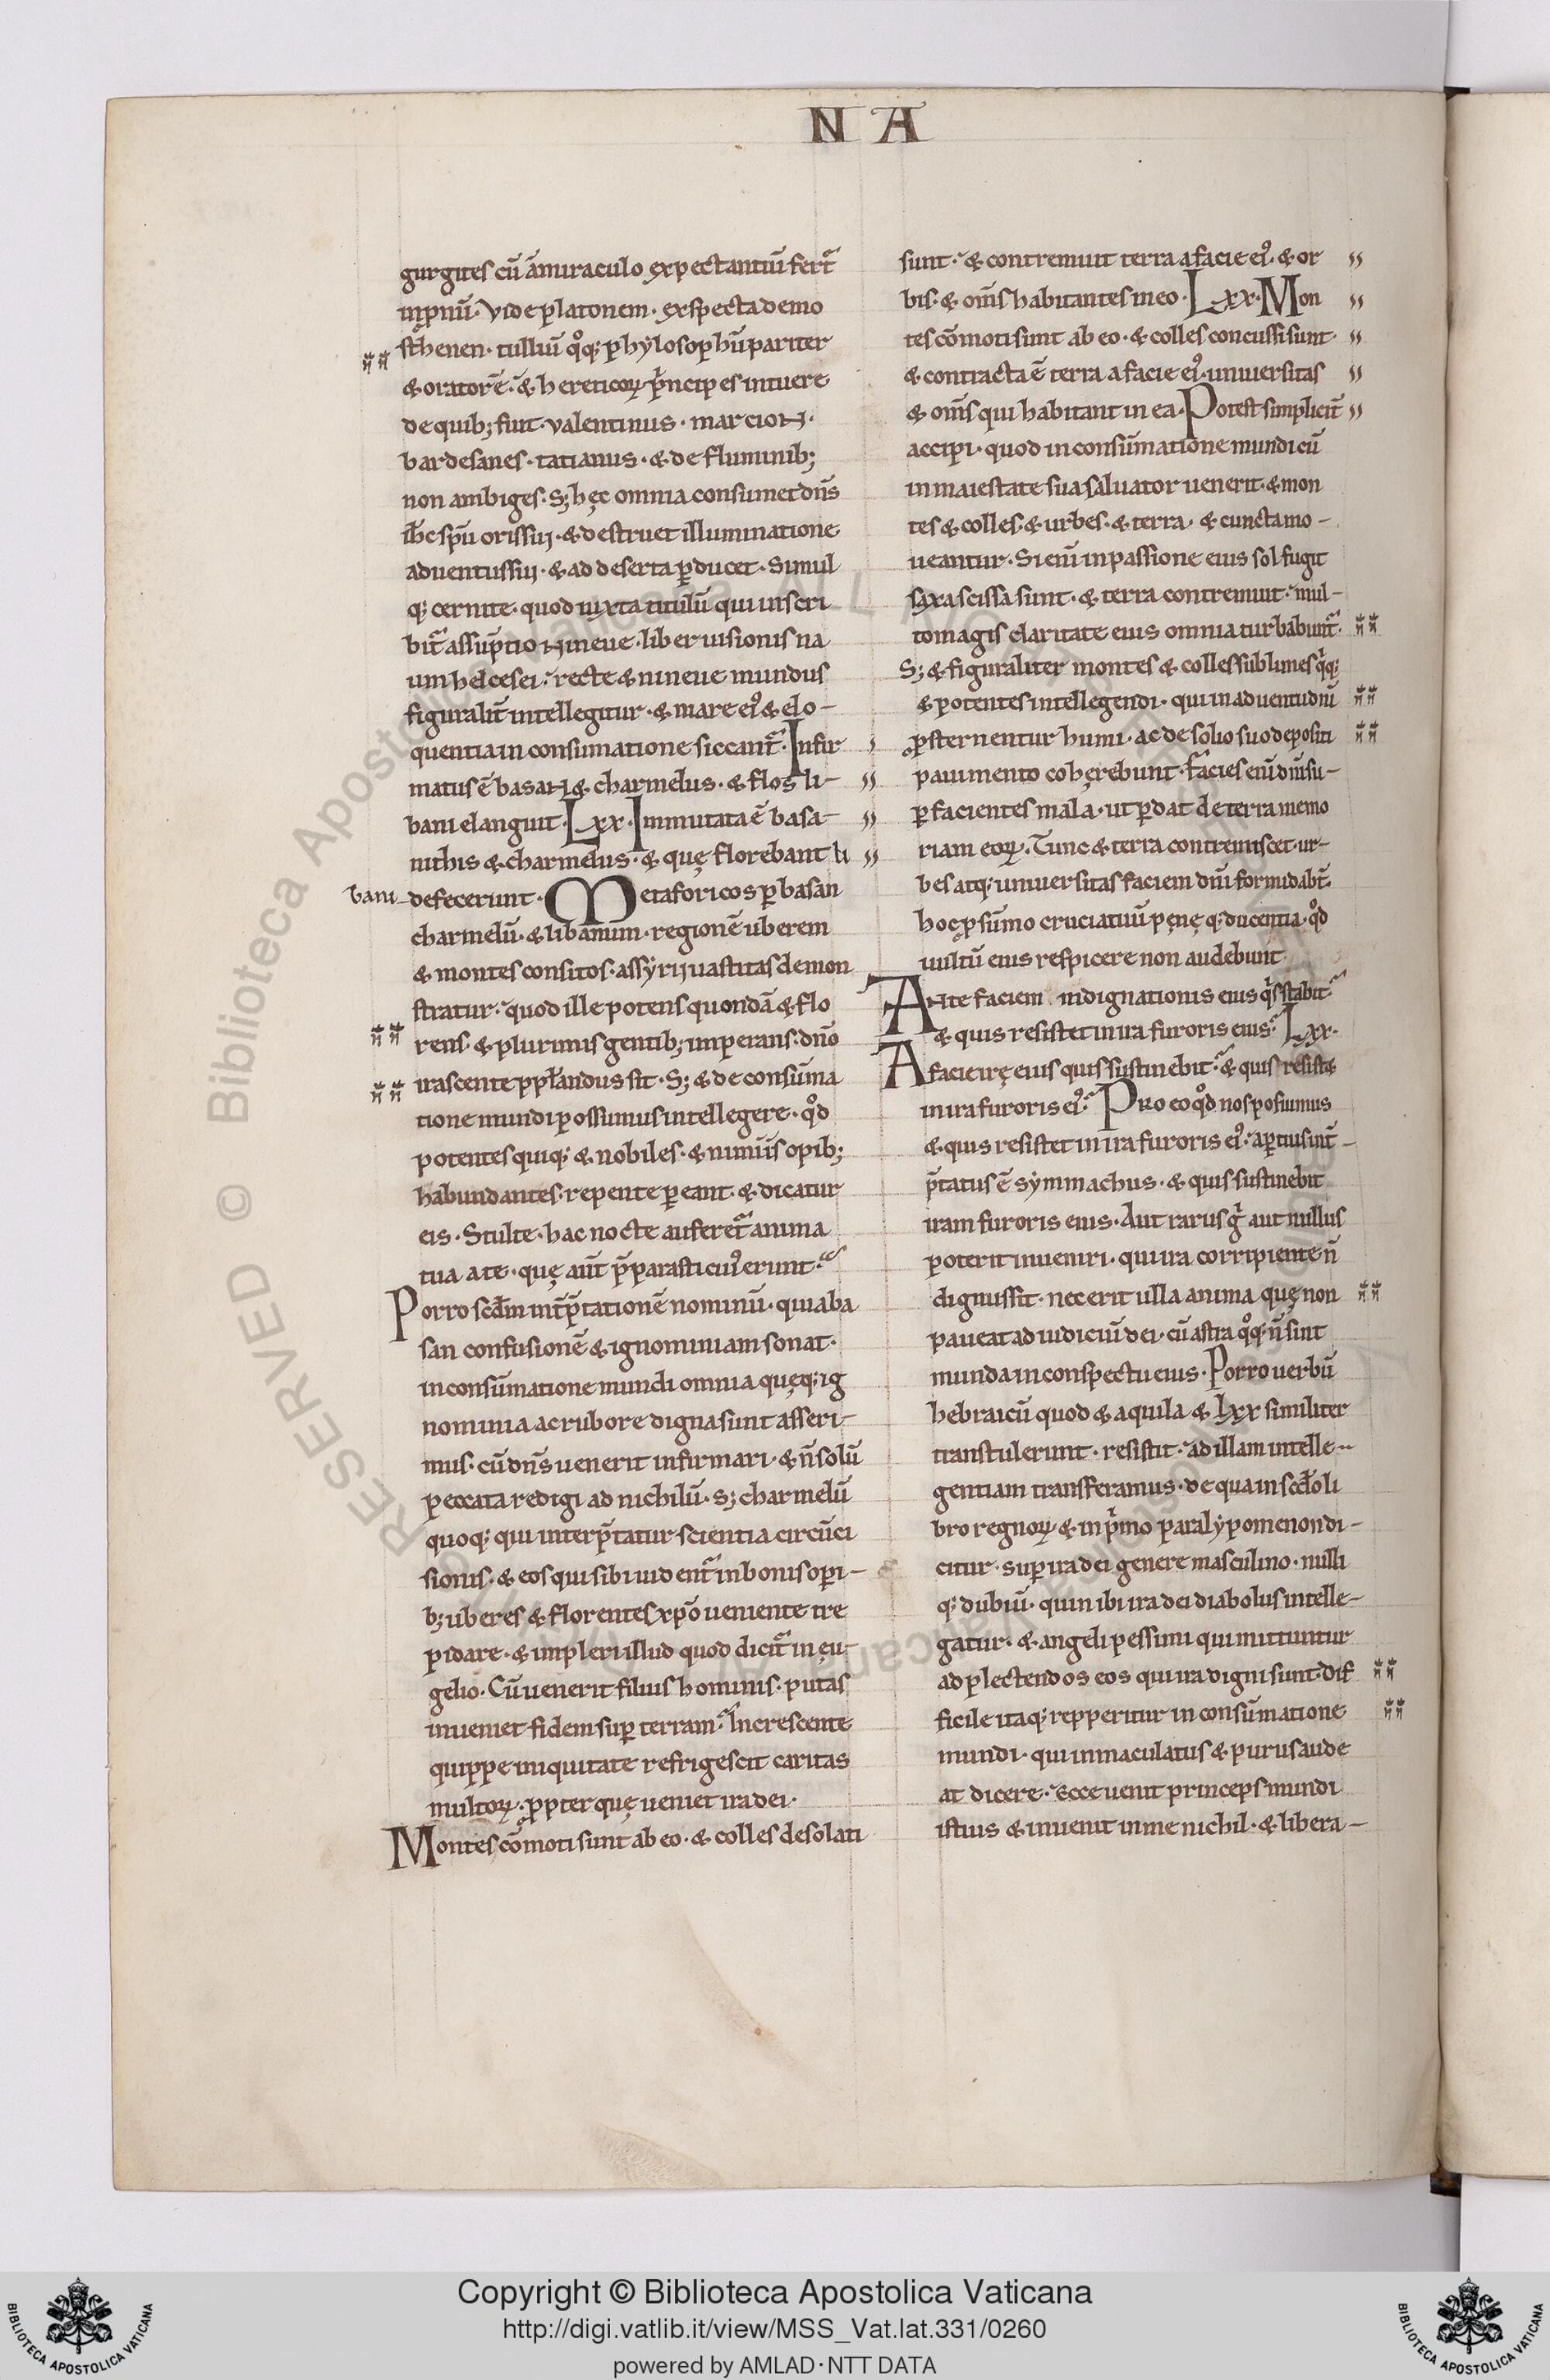 N A
gurgites cū ãmiraculo expectantiū fert᷑
inpnū. Vide platonem. exspecta demo
sthenen. tulliū qͦq; phylosophū pariter
& oratorē. & hereticoꝝ pͥncipes intuere
de quib; fuit. valentinus. marcioN.
bardesanes. tatianus. & de fluminib;
non ambiges. S; hęc omnia consumet dn̄s
ih̄c spū oris sui. & destruet illuminatione
adventus sui. & ad deserta ꝑducet. Simul
q; cernite. quod iuxta titulū qui inscri
bit᷑ assūptio Nineue. liber visionis na
um helcesei. recte & nineue mundus
figuralit̄ intellegitur. & mare ei᷒ & elo-
quentia in consumatione siccant᷑. Infir
matus ē basaN & charmelus. & flos li-
bani elanguit. Lxx. Immutata ē basa-
nithis & charmelus. & quę florebant li
bani defecerunt. Metaforicos ꝑ basan
charmelū. & libanum. regionē uberem
& montes consitos. assyrii vastitas demon
stratur. quod ille potens quondā & flo
rens. & plurimis gentib; imperans. dn̄o
irascente ppl̄andus sit. S; & de consūma
tione mundi possumus intellegere. qͦd
potentes quiq; & nobiles. & nimiis opib;
habundantes. repente ꝑeant. & dicatur
eis. Stulte. hac nocte auferet᷑ anima
tua a te. quę aūt p̄parasti cui᷒ erunt.
Porro scd̄m int̄p̄tationē nominū. quia ba
san confusionē & ignominiam sonat.
in consūmatione mundi omnia quęq; ig
nominia ac rubore digna sunt asseri-
mus. cū dn̄s uenerit infirmari. & n̄ solū
peccata redigi ad nichilū. s; charmelū
quoq; qui interp̄tatur scientia circūci
sionis. & eos qui sibi uident᷑ in bonis operi-
b; uberes & florentes xp̄o ueniente tre
pidare. & impleri illud quod dicit᷑ in eu-
gelio. Cū uenerit filius hominis. putas
inueniet fidem suꝑ terram. Increscente
quippe iniquitate refrigescit caritas
multoꝝ. ꝓpter quę ueniet ira dei.
Montes cōmoti sunt ab eo. & colles desolati
sunt. & contremuit terra a facie ei᷒. & or
bis. & om̄s habitantes in eo. Lxx. Mon
tes cōmoti sunt ab eo. & colles concussi sunt.
& contracta ē terra a facie ei᷒. uniuersitas
& om̄s qui habitant in ea. Potest simplicit̄
accipi. quod in consūmatione mundi cū
in maiestate sua saluator uenerit. & mon
tes & colles. & urbes. & terra. & cuncta mo-
ueantur. Si enī in passione eius sol fugit
saxa scissa sunt. & terra contremuit. mul-
to magis claritate eius omnia turbabunt᷑.
S; & figuraliter montes & colles sublimes qͥq;
& potentes intellegendi. qui in aduentu dn̄i
ꝓsternentur humi. ac de solio suo depositi
pauimento cohęrebunt. facies enī dn̄i su-
ꝑ facientes mala. ut ꝑdat de terra memo
riam eoꝝ. Tunc & terra contremiscet. ur-
bes atq; uniuersitas faciem dn̄i formidabt̄.
hoc ꝓ sūmo cruciatuū pęnę q; ducentia. qͦd
uultū eius respicere non audebunt
ANte faciem indignationis eius qͥs stabit.
& quis resistet in ira furoris eius. Lxx.
A facie irę eius quis sustinebit. & quis resist&
in ira furoris ei᷒. Pro eo qͦd nos posuimus
& quis resistet in ira furoris ei᷒. apertius int̄-
p̄tatus ē symmachus. & quis sustinebit
iram furoris eius. Aut rarus gͥ aut nullus
poterit inueniri. qui ira corripiente n̄
dignus sit. nec erit ulla anima quę non
paueat ad iudiciū dei. cū astra qͦq; n̄ sint
munda in conspectu eius. Porro uerbū
hebraicū quod & aquila & lxx similiter
transtulerunt. resistit. ad illam intelle-
gentiam transferamus. de qua in scd̄o li
bro regnoꝝ & in pͥmo paralypomenon di-
citur. Suꝑ ira dei genere masculino. nulli
q; dubiū. quin ibi ira dei diabolus intelle-
gatur. & angeli pessimi qui mittuntur
ad plectendos eos qui ira digni sunt. dif
ficile itaq; repperitur in consūmatione
mundi. qui inmaculatus & purus aude
at dicere. Ecce uenit princeps mundi
istius & inuenit in me nichil. & libera-
RESERVED © Biblioteca Apostolica Vaticana
Copyright © Biblioteca Apostolica Vaticana
http://digi.vatlib.it/view/MSS_Vat.lat.331/0260
powered by AMLAD·NTT DATA
BIBLIOTECA APOSTOLICA VATICANA
BIBLIOTECA APOSTOLICA VATICANA